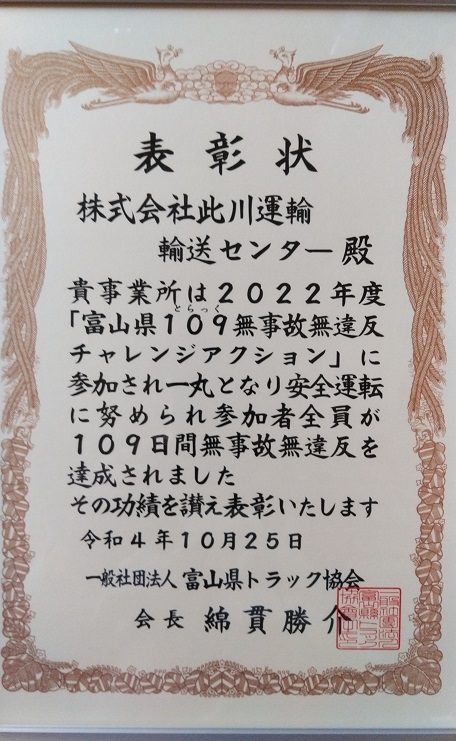 表彰状
株式会社此川運輸
輸送センター殿
貴事業所は２０２２年度
とらっく
「富山県１０９無事故無違反
チャレンジアクション」に
参加され一丸となり安全運転
に努められ参加者全員が
１０９日間無事故無違反を
達成されました
その功績を讃え表彰いたします
令和４年１０月２５日
一般社団法人 富山県トラック協会
会長 綿貫勝介